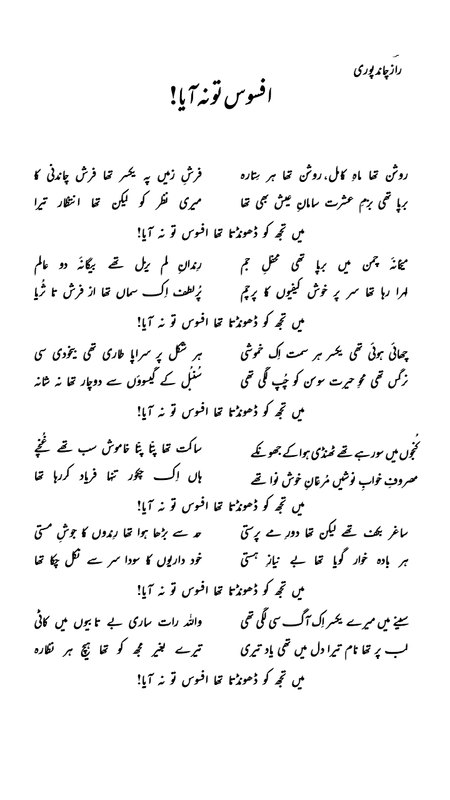 راز چاند پوری
افسوس تو نہ آیا!
روشن تھا ماہِ کامل، روشن تھا ہر ستارہ فرشِ زمیں پہ یکسر تھا فرش چاندنی کا
برپا تھی بزمِ عشرت سامانِ عیش بھی تھا میری نظر کو لیکن تھا انتظار تیرا
میں تجھ کو ڈھونڈتا تھا افسوس تو نہ آیا!
میخانۂ چمن میں برپا تھی محفلِ جم رندانِ لم یزل تھے بیگانۂ دو عالم
لہرا رہا تھا سر پر خوش کیفیوں کا پرچم پُرلطف اِک سماں تھا از فرش تا ثُریا
میں تجھ کو ڈھونڈتا تھا افسوس تو نہ آیا!
چھائی ہوئی تھی یکسر ہر سمت اِک خموشی ہر شکل پر سراپا طاری تھی بیخودی سی
نرگس تھی محوِ حیرت سوسن کو چُپ لگی تھی سُنبُل کے گیسوؤں سے دوچار تھا نہ شانہ
میں تجھ کو ڈھونڈتا تھا افسوس تو نہ آیا!
کُنجوں میں سو رہے تھے ٹھنڈی ہوا کے جھونکے ساکت تھا پتّا پتّا خاموش سب تھے غُنچے
مصروفِ خوابِ نوشیں مُرغانِ خوش نوا تھے ہاں اِک چکور تنہا فریاد کر رہا تھا
میں تجھ کو ڈھونڈتا تھا افسوس تو نہ آیا!
ساغر بکف تھے لیکن تھا دور مے پرستی حد سے بڑھا ہوا تھا رِندوں کا جوشِ مستی
ہر بادہ خوار گویا تھا بے نیازِ ہستی خود داریوں کا سودا سر سے نکل چکا تھا
میں تجھ کو ڈھونڈتا تھا افسوس تو نہ آیا!
سینے میں میرے یکسر اِک آگ سی لگی تھی واللہ رات ساری بے تابیوں میں کاٹی
لب پر تھا نام تیرا دل میں تھی یاد تیری تیرے بغیر مجھ کو تھا ہیچ ہر نظارہ
میں تجھ کو ڈھونڈتا تھا افسوس تو نہ آیا!